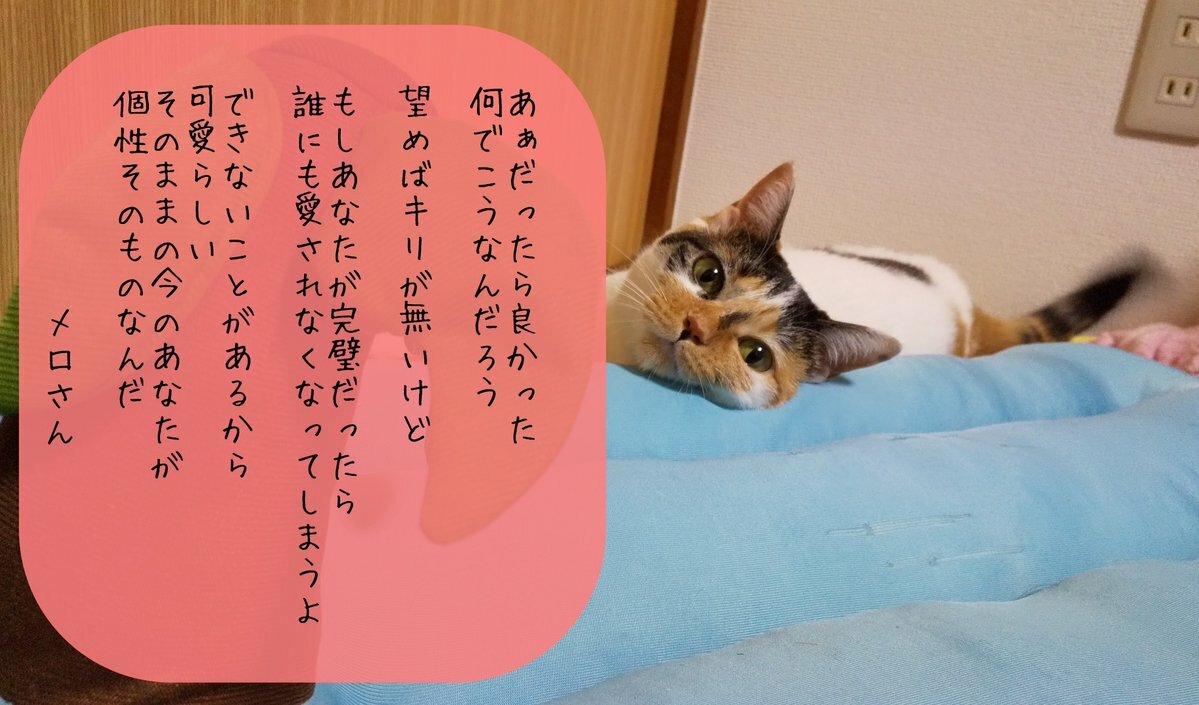 あぁだったら良かった
何でこうなんだろう
望めばキリが無いけど
もしあなたが完璧だったら
誰にも愛されなくなってしまうよ
できないことがあるから
可愛らしい
そのままの今のあなたが
個性そのものなんだ
メロさん